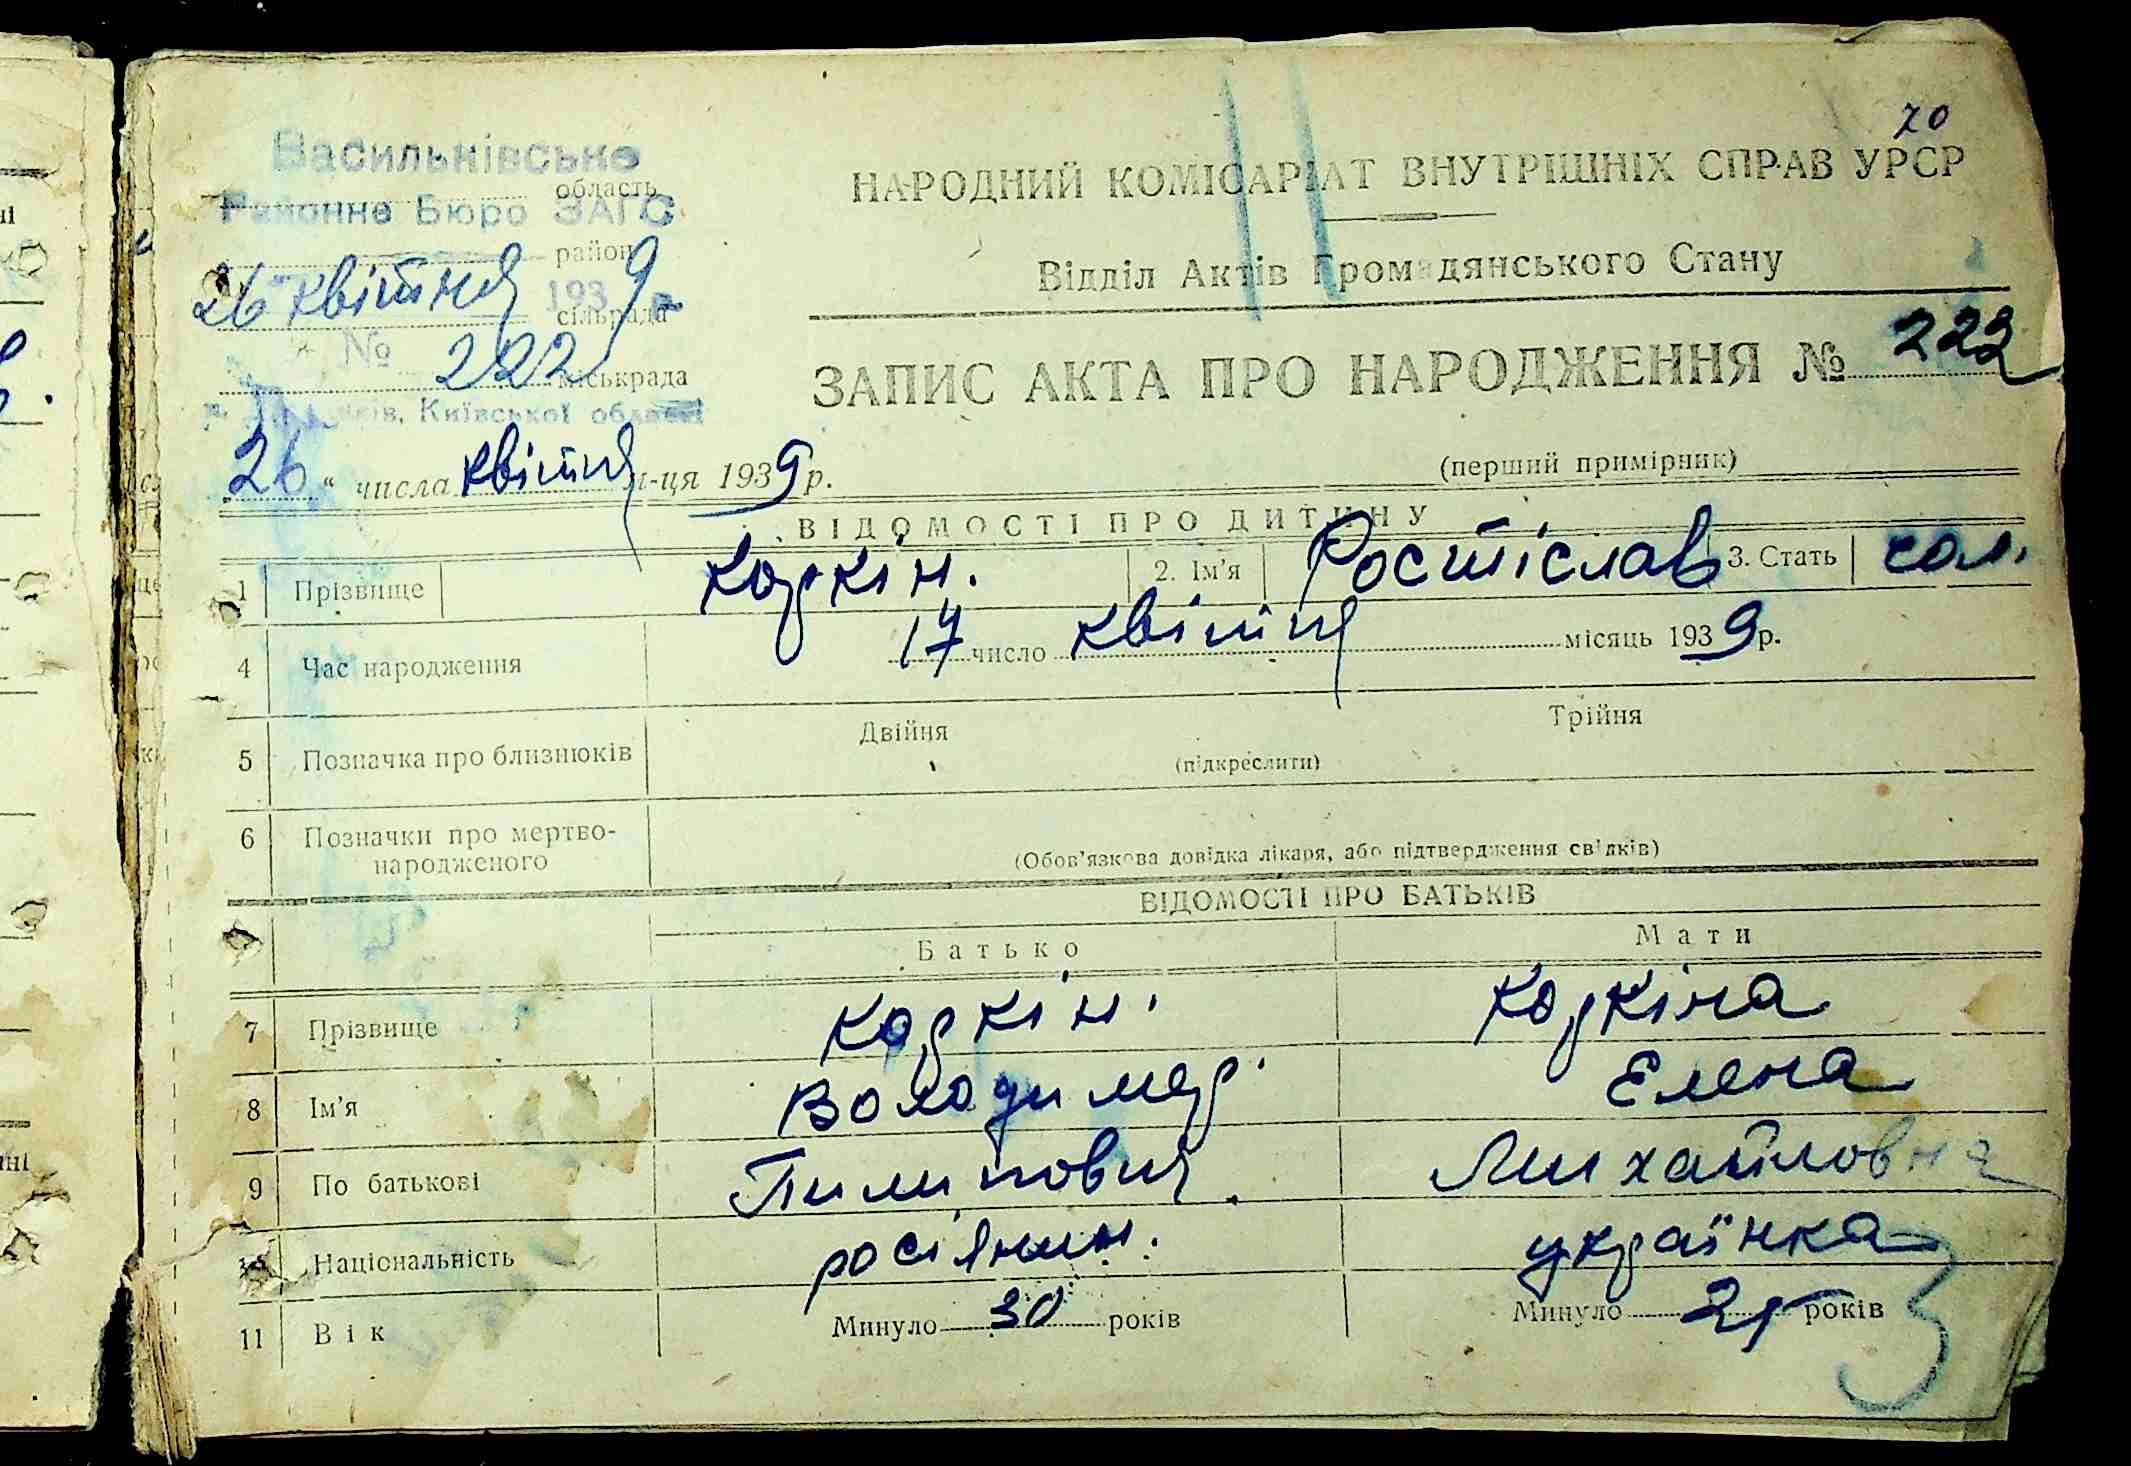 70
Васильківське
Районне Бюро ЗАГС
область
район
26 квітня 1939 р.
сільрада
№ 222
міськрада
Київської області
НАРОДНИЙ КОМІСАРІАТ ВНУТРІШНІХ СПРАВ УРСР
Відділ Актів Громадянського Стану
ЗАПИС АКТА ПРО НАРОДЖЕННЯ № 222
(перший примірник)
26 " числа квітня м-ця 1939 р.
ВІДОМОСТІ ПРО ДИТИНУ
1 Прізвище Коркін. 2. Ім'я Ростіслав 3. Стать чол.
4 Час народження 17 число квітня місяць 1939 р.
5 Позначка про близнюків Двійня (підкреслити) Трійня
6 Позначки про мертво-
народженого (Обов'язкова довідка лікаря, або підтвердження свідків)
ВІДОМОСТІ ПРО БАТЬКІВ
Батько Мати
7 Прізвище Коркін. Коркіна
8 Ім'я Володимер. Елена
9 По батькові Пилипович. Михайловна
10 Національність росіянин. українка
11 Вік Минуло 30 років Минуло 25 років